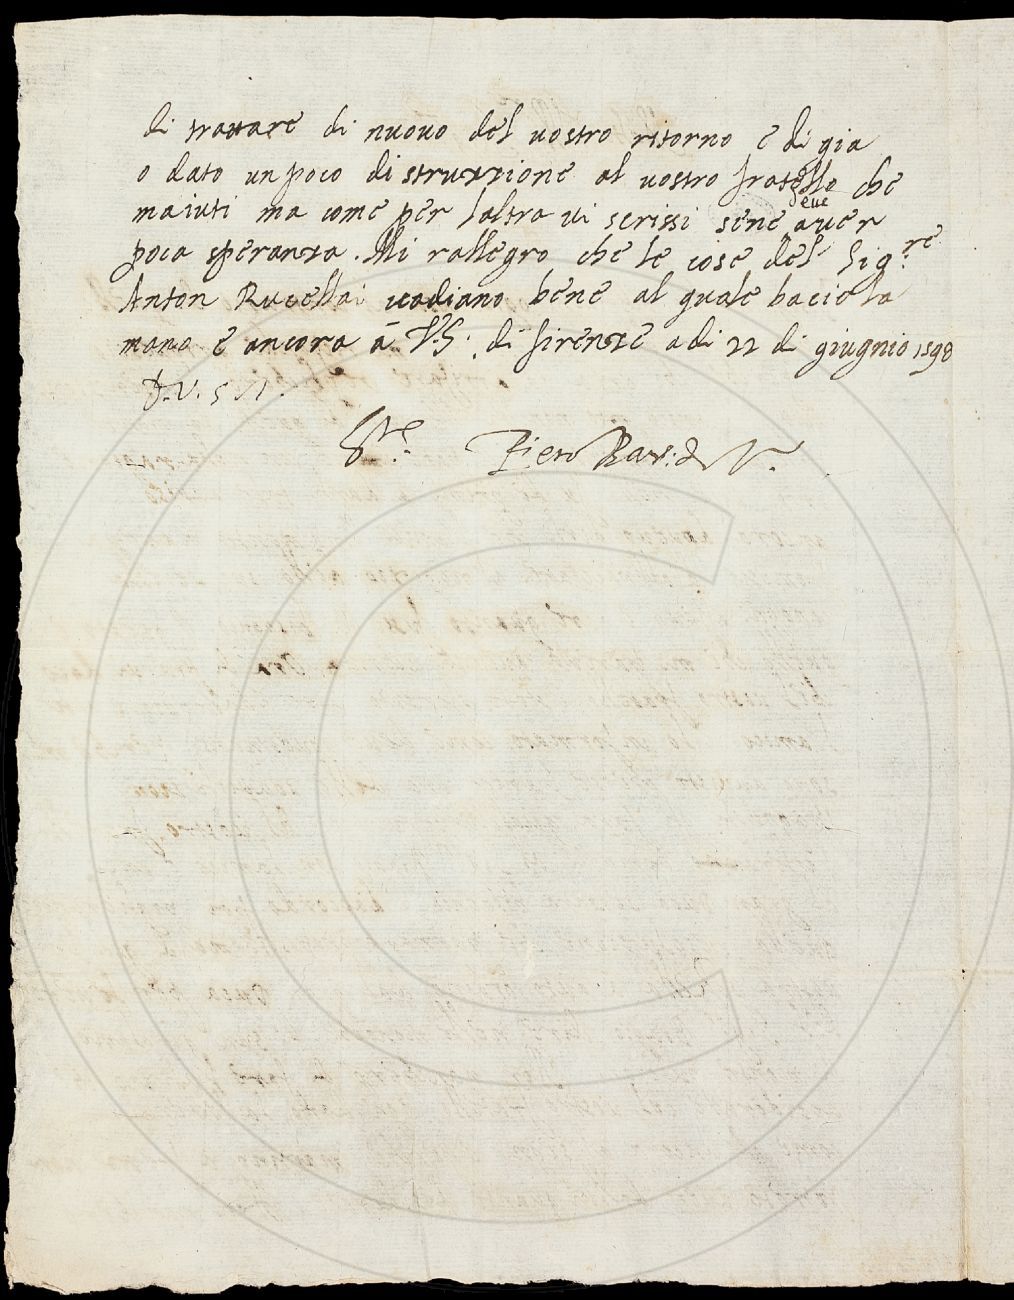 di trattare di nuovo del vostro ritorno e di gia
o dato un poco di struzzione al vostro fratello che
maiuti ma come per laltra vi scrissi sene deue aver
poca speranza. Mi rallegro che le cose del Sig.re
Anton Rucellai vadiano bene al quale bacio la
mano e ancora á V.S. di firenze a di 22 di giugnio 1598
D.V.S.
Piero